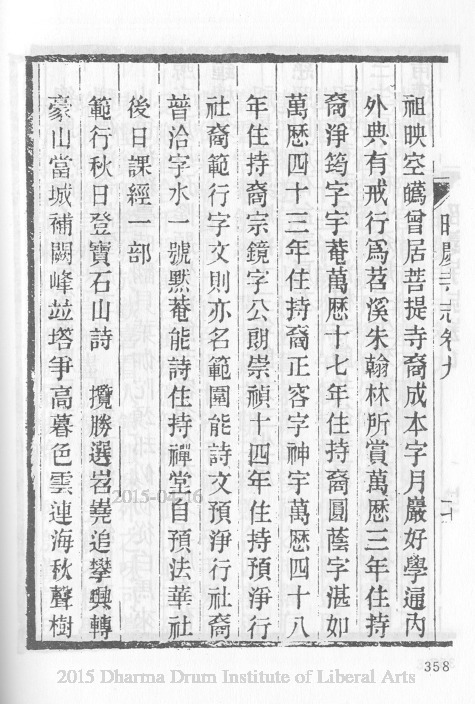 昭慶寺志卷九
祖映空皭曾居菩提寺裔成本字月巖好學通內
外典有戒行爲苕溪朱翰林所賞萬歷三年住持
裔淨筠字宇菴萬歷十七年住持裔圓蔭字湛如
萬歷四十三年住持裔正容字神宇萬歷四十八
年住持裔宗鏡字公朗崇禎十四年住持預淨行
社裔範行字文則亦名範圍能詩文預淨行社裔
普洽字水一號黙菴能詩住持禪堂自預法華社
後日課經一部
範行秋日登寶石山詩 攬勝選岧嶤追攀興轉
豪山當城補闕峰竝塔爭高暮色雲連海秋聲樹
2015-04-16
358
2015 Dharma Drum Institute of Liberal Arts